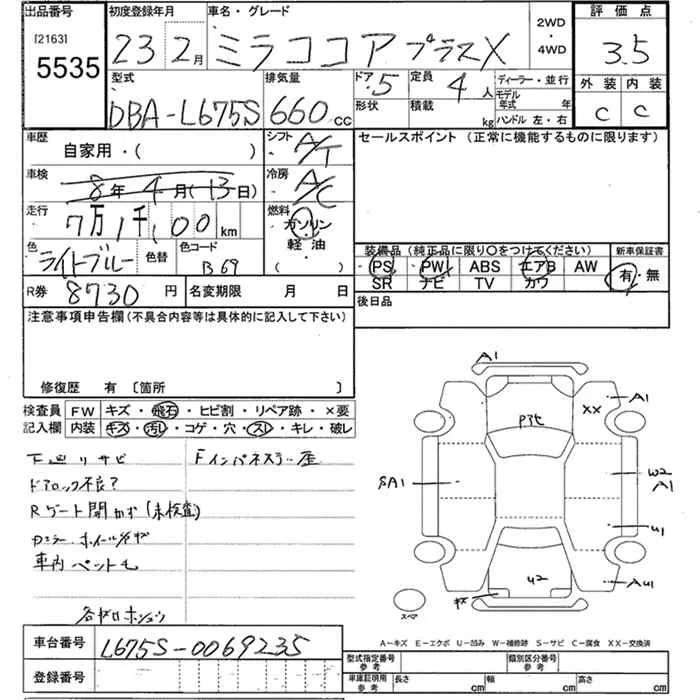 出品番号 初度登録年月 車名・グレード 2WD・4WD 評価点
[2163] 5535 23年2月 ミラココアプラスX 3.5
型式 排気量 ドア 5 定員 4人 ディーラー・並行 外装 内装
DBA-L675S 660cc 形状 積載 kg モデル年式 年 ハンドル 左・右 C C
車歴 自家用・( ) シフト A/T セールスポイント (正常に機能するものに限ります)
車検 8年4月(13日) 冷房 A/C
走行 7万1千,00km 燃料 ガソリン 軽油 ( )
色 ライトブルー 色替 色コード B69
装備品(純正品に限り〇をつけてください) 新車保証書
PS PW ABS エアB AW 有・無
SR ナビ TV カワ
R券 8730円 名変期限 月 日 後日品
注意事項申告欄(不具合内容等は具体的に記入して下さい)
修復歴 有 〔箇所 〕
検査員記入欄 FW キズ・飛石・ヒビ割・リペア跡・×要
内装 キズ・汚レ・コゲ・穴・スレ・キレ・破レ
下廻りサビ
ドアロック不良?
Rゲート開かず(未検査)
車内ペット毛
A1
A1
XX
SA1
W2
A1
U1
U2
AU1
スペア
A-キズ E-エクボ U-凹み W-補修跡 S-サビ C-腐食 XX-交換済
車台番号 L675S-0069235
登録番号
型式指定番号 参考 類別区分番号 参考
車庫証明用 参考 長さ cm 幅 cm 高さ cm